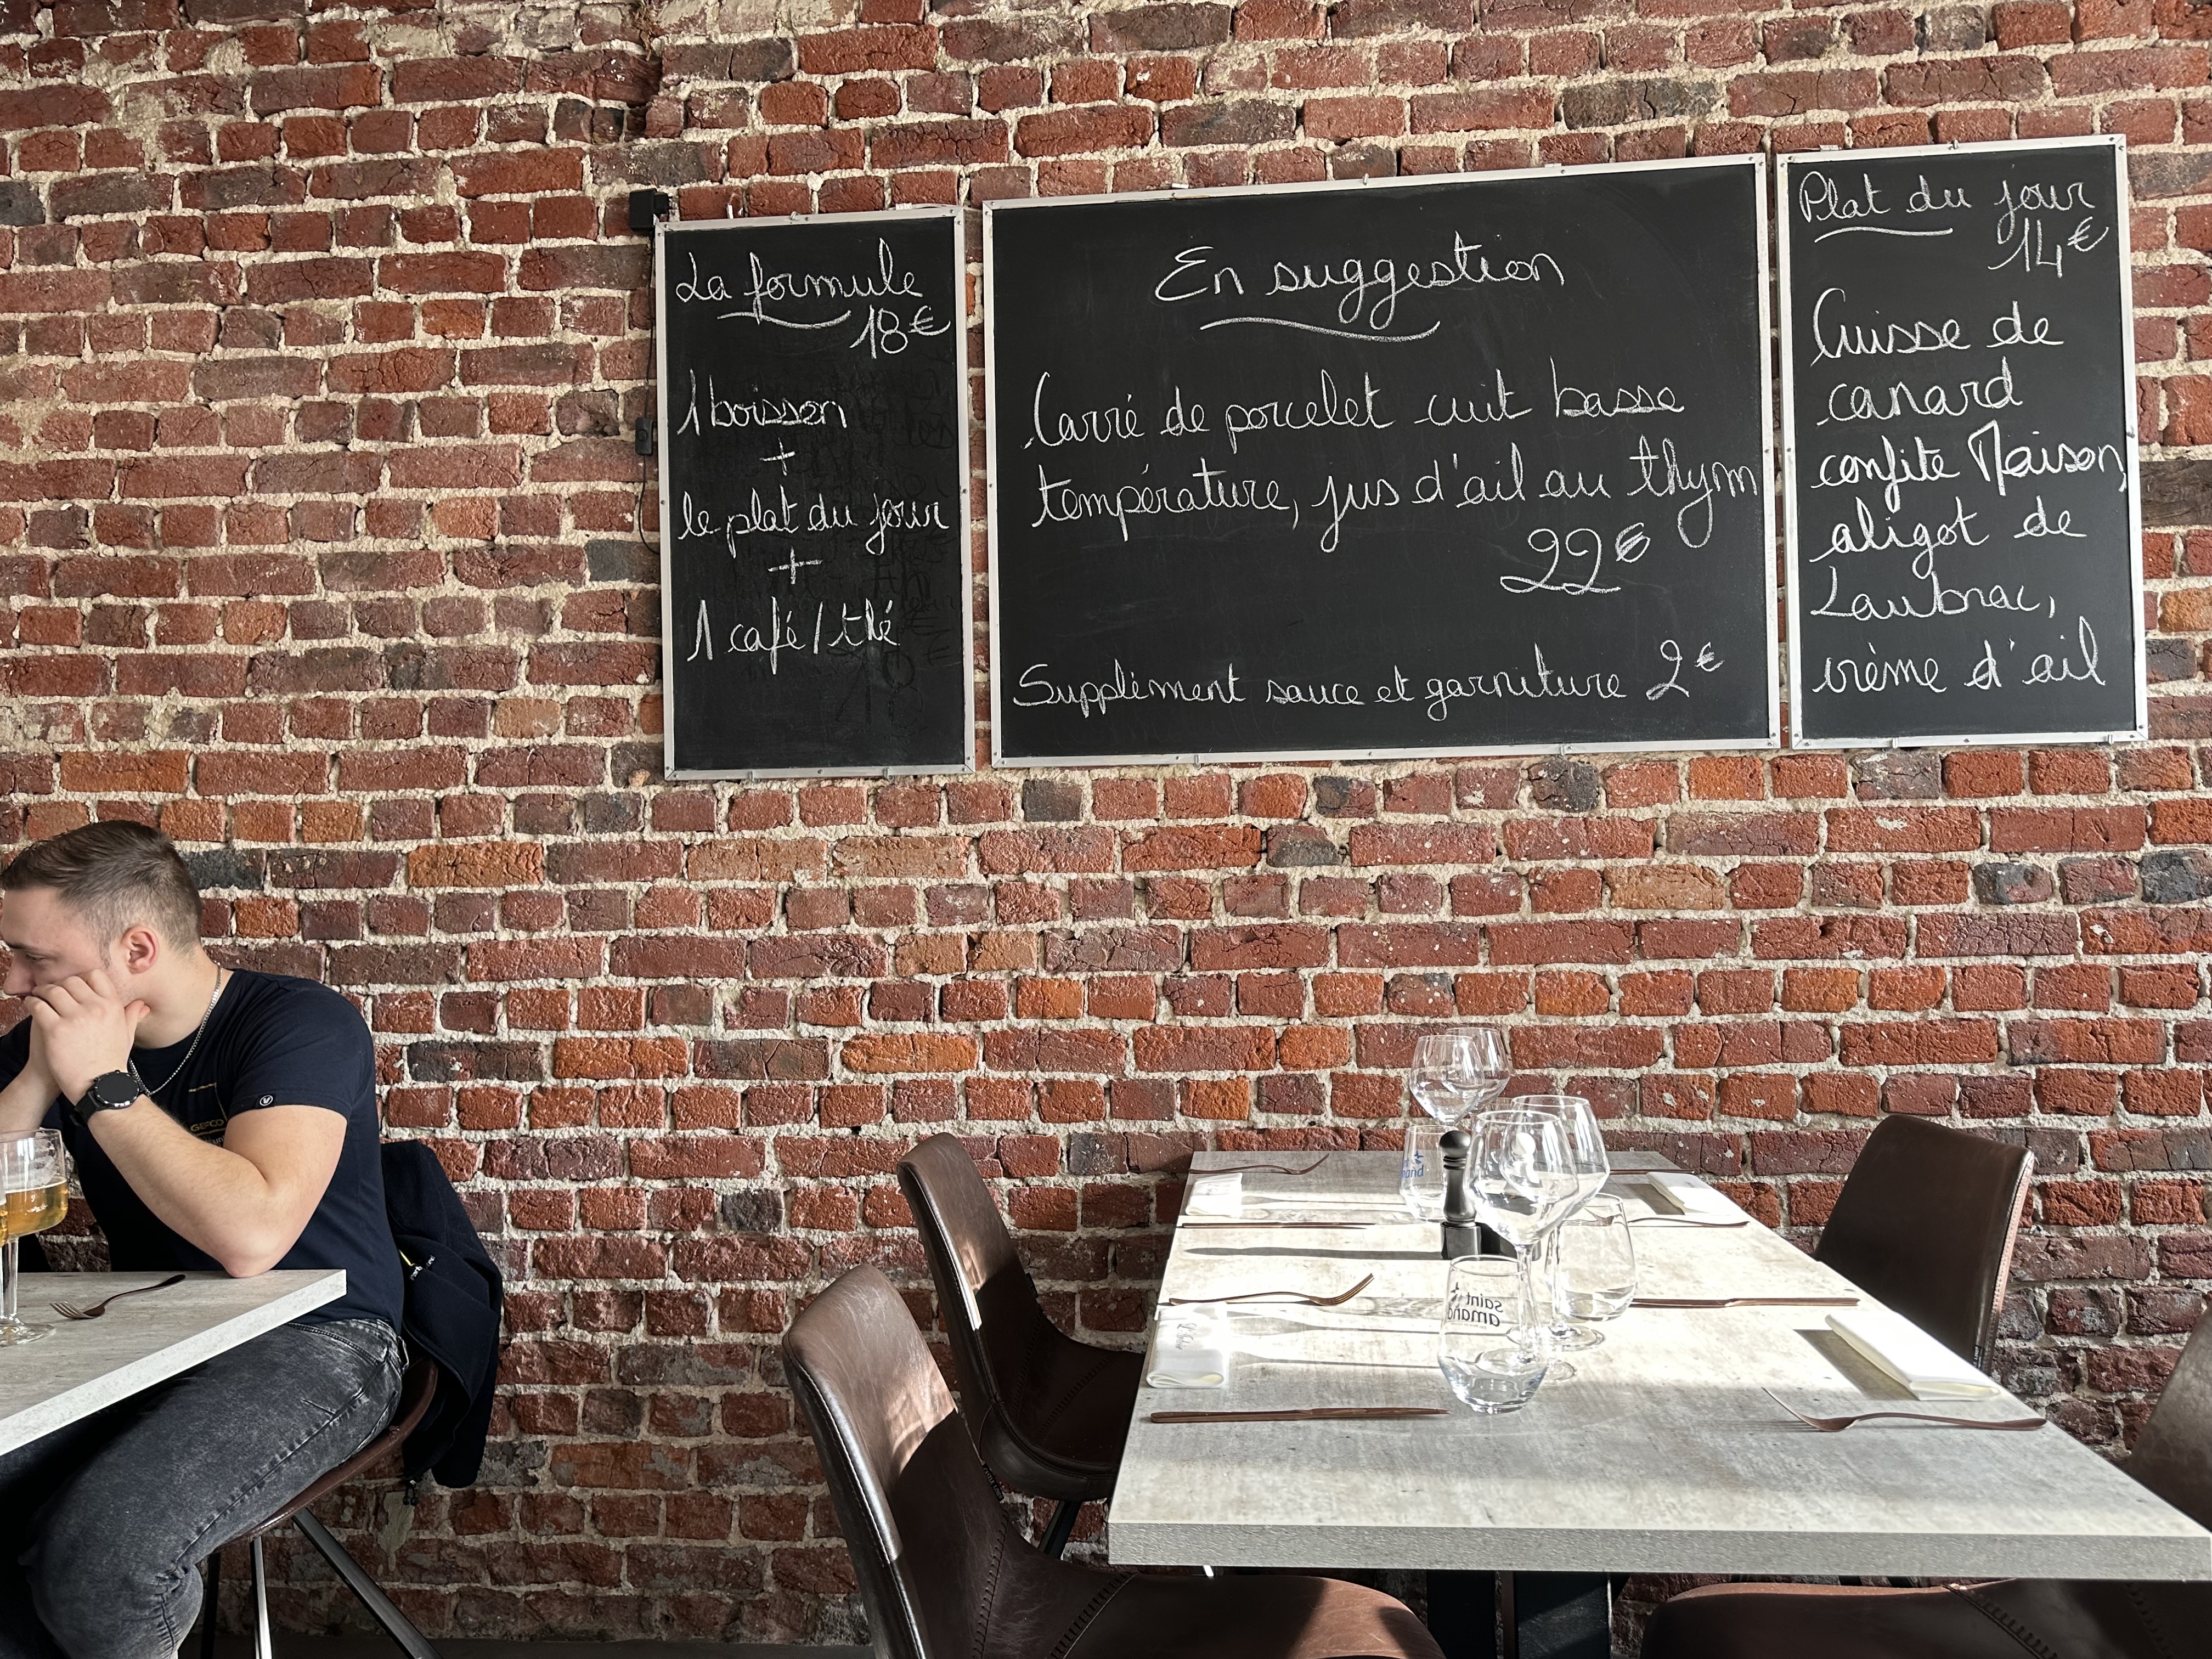 La formule
18€
1 boisson
+
le plat du jour
+
1 café/thé
En suggestion
Carré de porcelet cuit basse
température, jus d'ail au thym
22€
Supplément sauce et garniture 2€
Plat du jour
14€
Cuisse de
canard
confite Maison,
aligot de
Laubrac,
crème d'ail
GEFCO
saint
amand